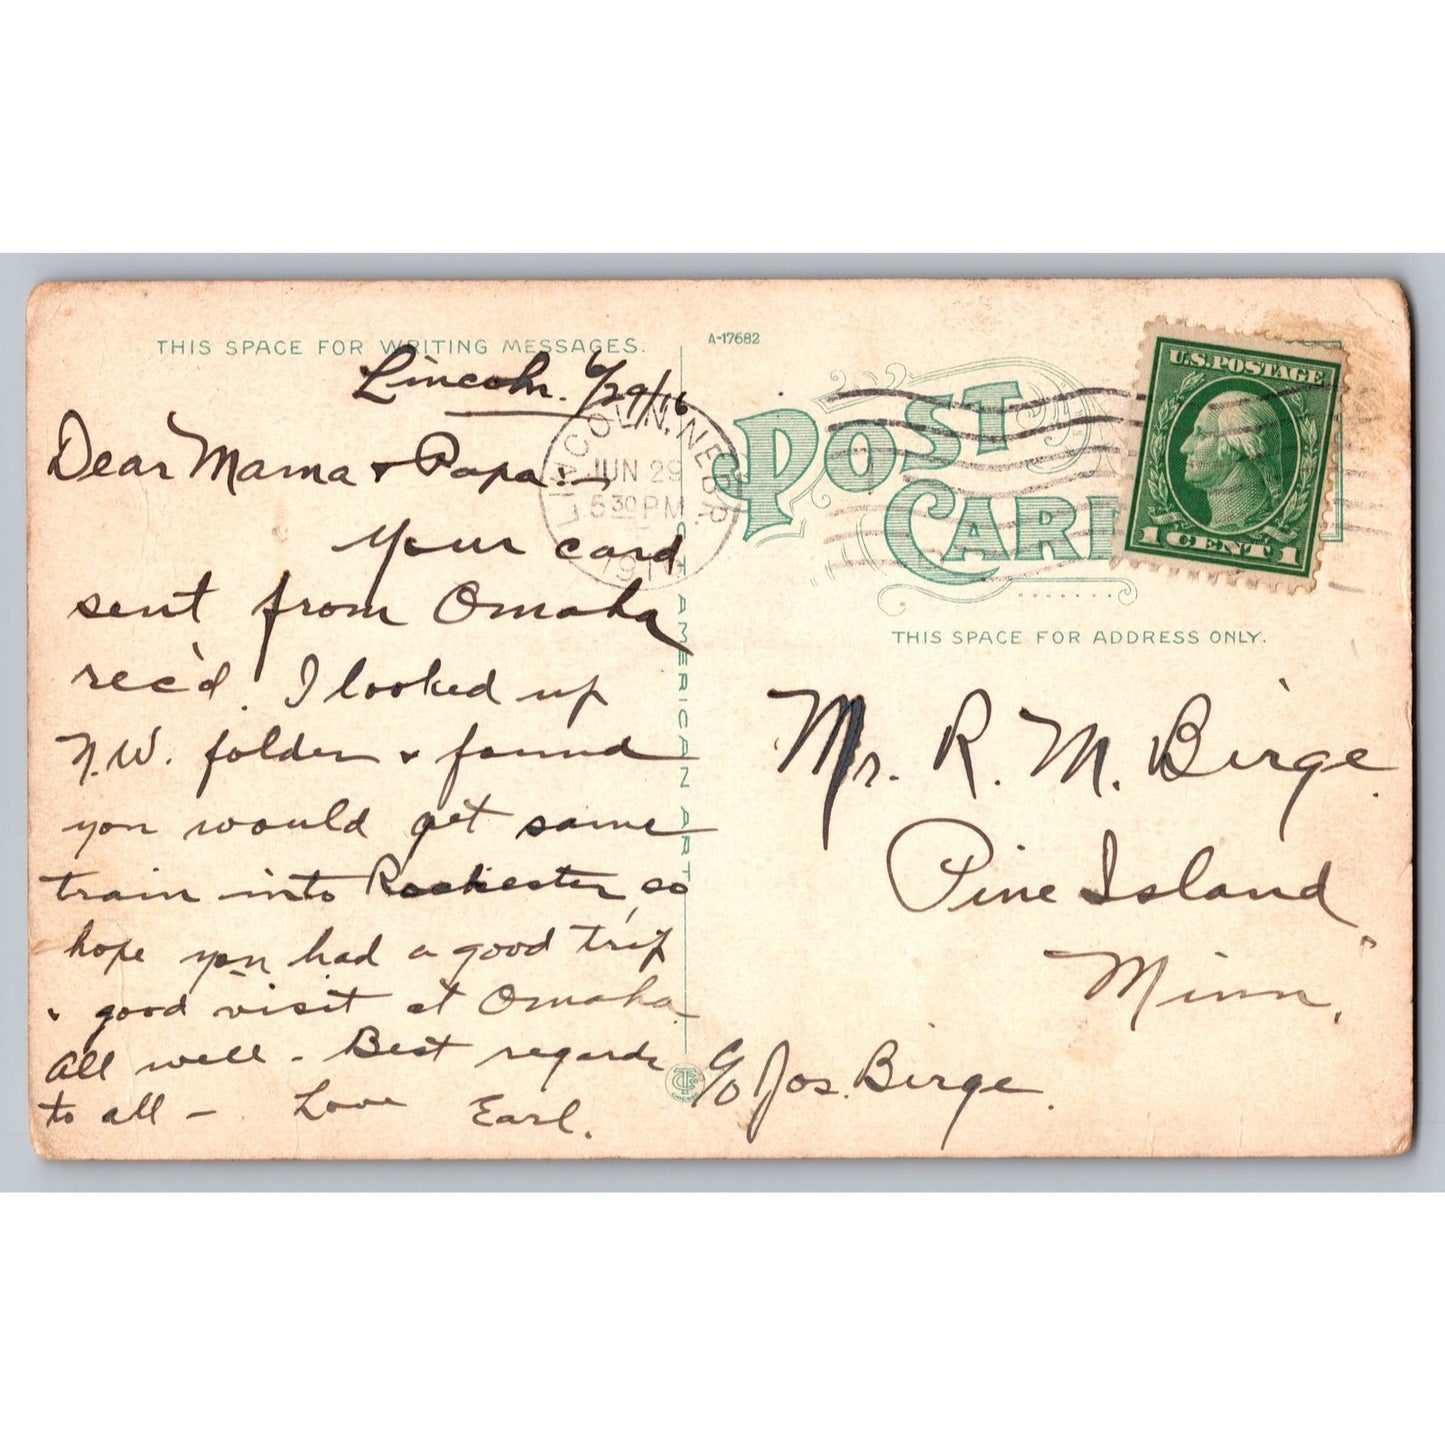 THIS SPACE FOR WRITING MESSAGES.
Lincoln. 6/29/16
Dear Mama & Papa:—
Your card
sent from Omaha
rec'd. I looked up
N.W. folder & found
you would get same
train into Rochester, so
hope you had a good trip
& good visit at Omaha.
All well - Best regards
to all - Love Earl.
LINCOLN, NEBR.
JUN 29
5 30 PM
AMERICAN ART
A-17682
POST
CARD
U.S. POSTAGE
1 CENT 1
THIS SPACE FOR ADDRESS ONLY.
Mr. R. M. Birge.
Pine Island,
Minn.
c/o Jos. Birge.